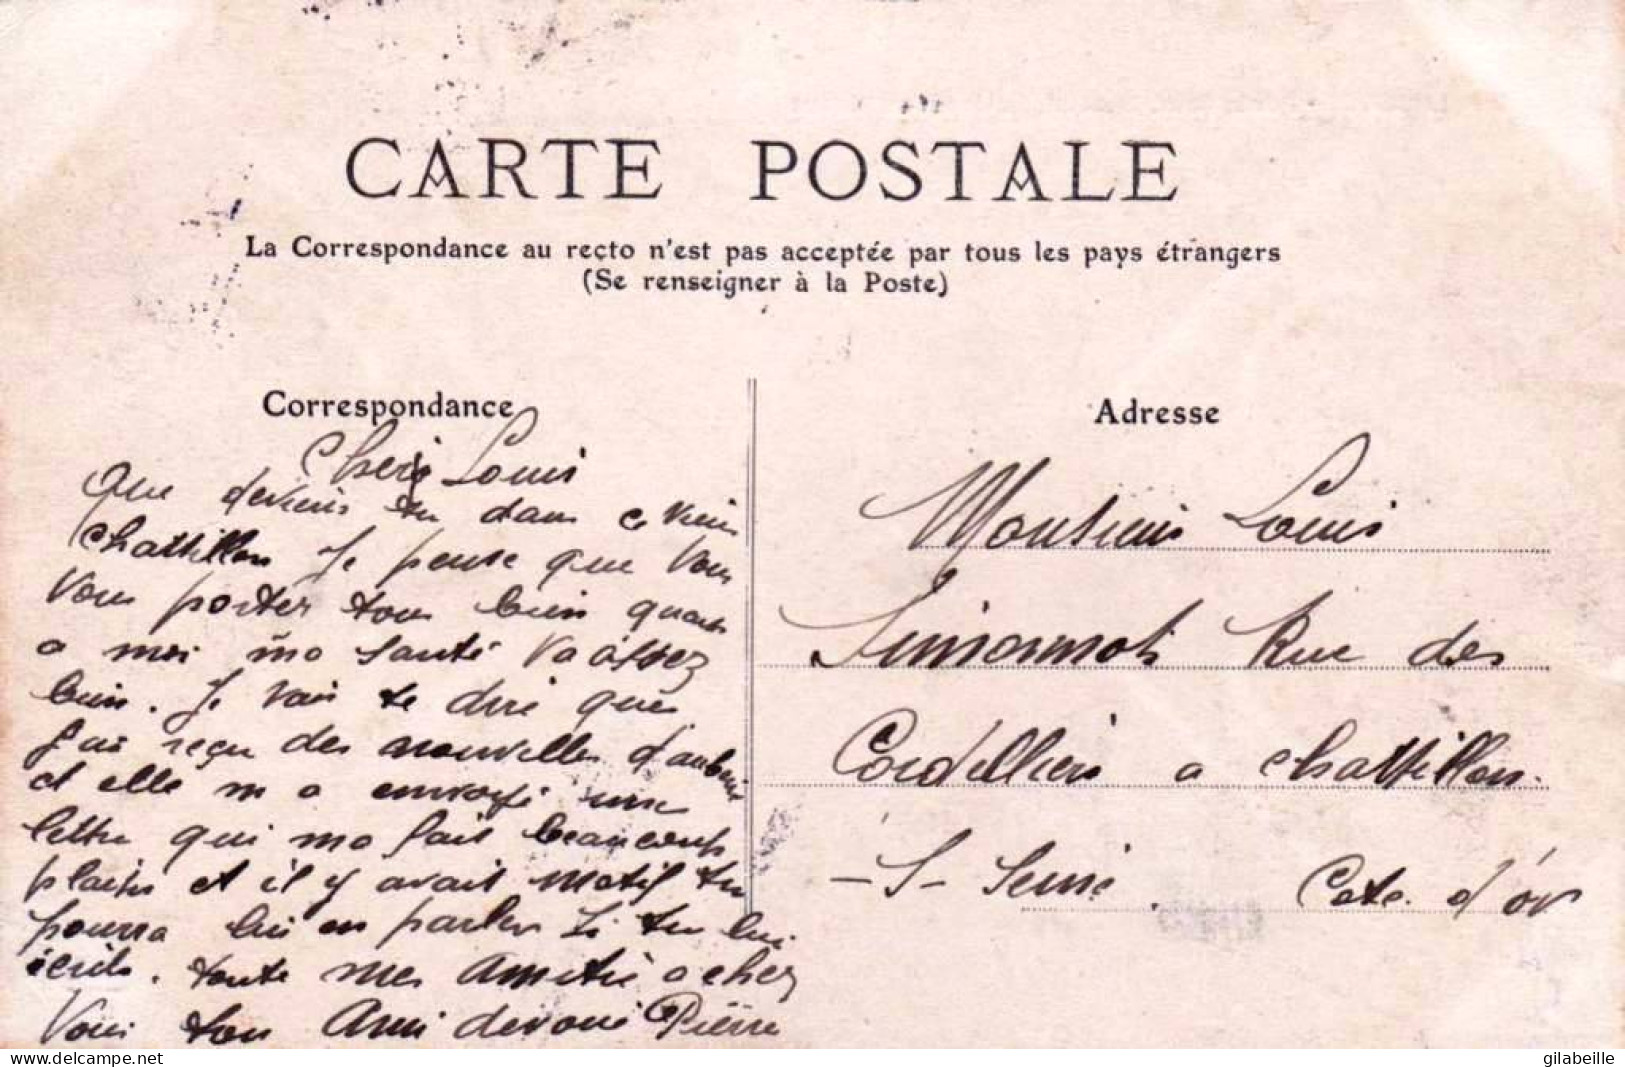 CARTE POSTALE
La Correspondance au recto n'est pas acceptée par tous les pays étrangers
(Se renseigner à la Poste)
Correspondance
Cher Louis
Que deviens tu dans ce vieux
Chattillon Je pense que vous
vous porter tous bien quant
a moi ma santé va assez
bien. Je vais te dire que
j'ai reçu des nouvelles d'
et elle m a envoyé une
lettre qui ma fait beaucoup
plaisir et il y avait motif tu
pourra lui en parler si tu lui
écrits. toute mes Amitié a chez
Vous ton Ami devoué Pierre
Adresse
Monsieur Louis
Rue des
Cordelliers a Chattillon.
-S- Seine. Cote. d'or
delcampe.net
gilabeille